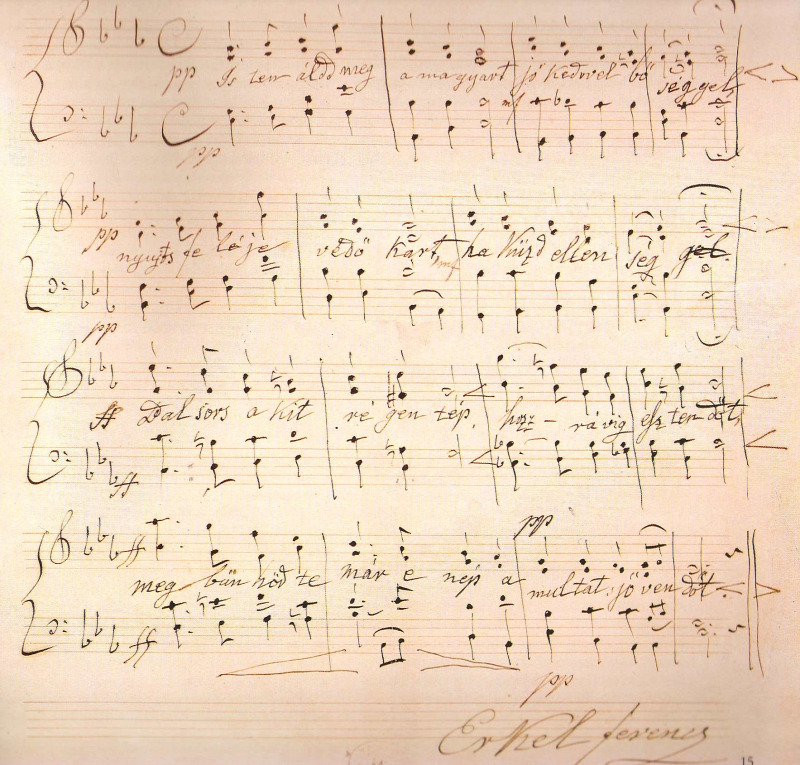 pp Is ten áldd meg a magyart jó kedvvel bő séggel
mf
pp
pp nyujts fe léje védő kart, mf ha küzd ellen ség gel.
pp
ff Bal sors a kit ré gen tép, hozz - rá víg esz ten dőt,
ff
pp
ff meg bűn hőd te már e nép a multat jö ven dőt
ff
pp
Erkel ferencz
15